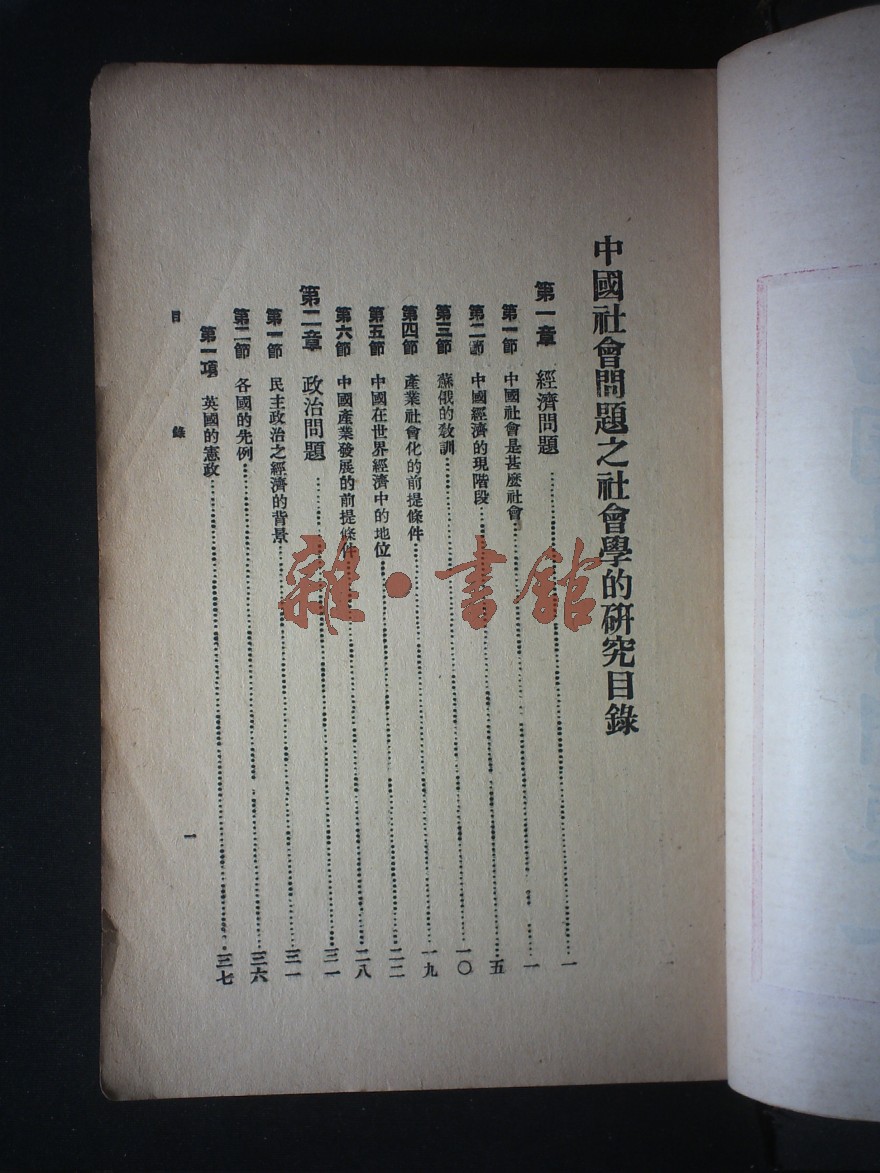 中國社會問題之社會學的研究目錄
第一章 經濟問題……一
第一節 中國社會是甚麼社會……一
第二節 中國經濟的現階段……五
第三節 蘇俄的敎訓……一〇
第四節 產業社會化的前提條件……一九
第五節 中國在世界經濟中的地位……二二
第六節 中國產業發展的前提條件……二八
第二章 政治問題……三一
第一節 民主政治之經濟的背景……三一
第二節 各國的先例……三六
第一項 英國的憲政……三七
目錄 一
雜·書館